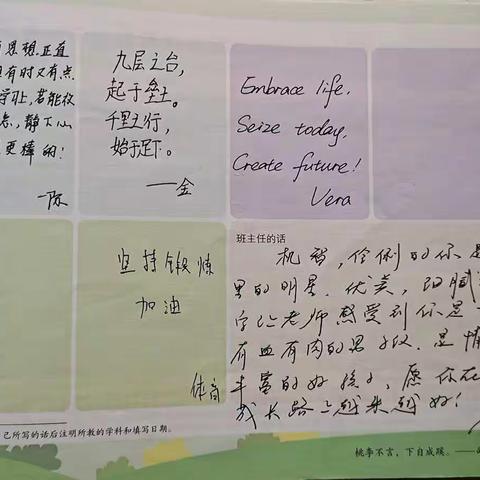 思想正直
但有时又有点
学习上,若能收
静下心
更棒的!
—陈
九层之台,
起于垒土。
千里之行,
始于足下。
——金
Embrace life.
Seize today.
Create future!
Vera
坚持锻炼
加油
体育
班主任的话
机智,伶俐的你是
里的明星.优美,细腻
字让老师感受到你是
有血有肉的男子汉.是情
丰富的好孩子,愿你在
成长路上越来越好!
己所写的话后注明所教的学科和填写日期。
桃李不言,下自成蹊。——